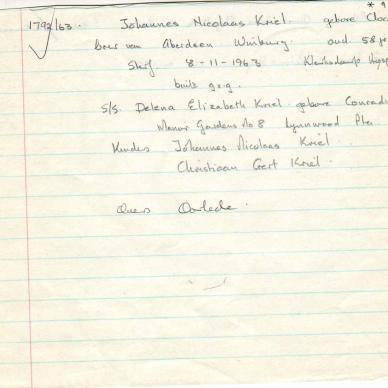 * 9
1792/63. Johannes Nicolaas Kriel. gebore
Boer van Aberdeen Winburg. oud 58 jr
Sterf. 8-11-1963 Klerksdorp Hosp
buite g.v.g.
s/s. Delena Elizabeth Kriel gebore Conradi
Manor Gardens No 8 Lynnwood Pta
Kinders Johannes Nicolaas Kriel
Christiaan Gert Kriel.
Ouers Oorlede.